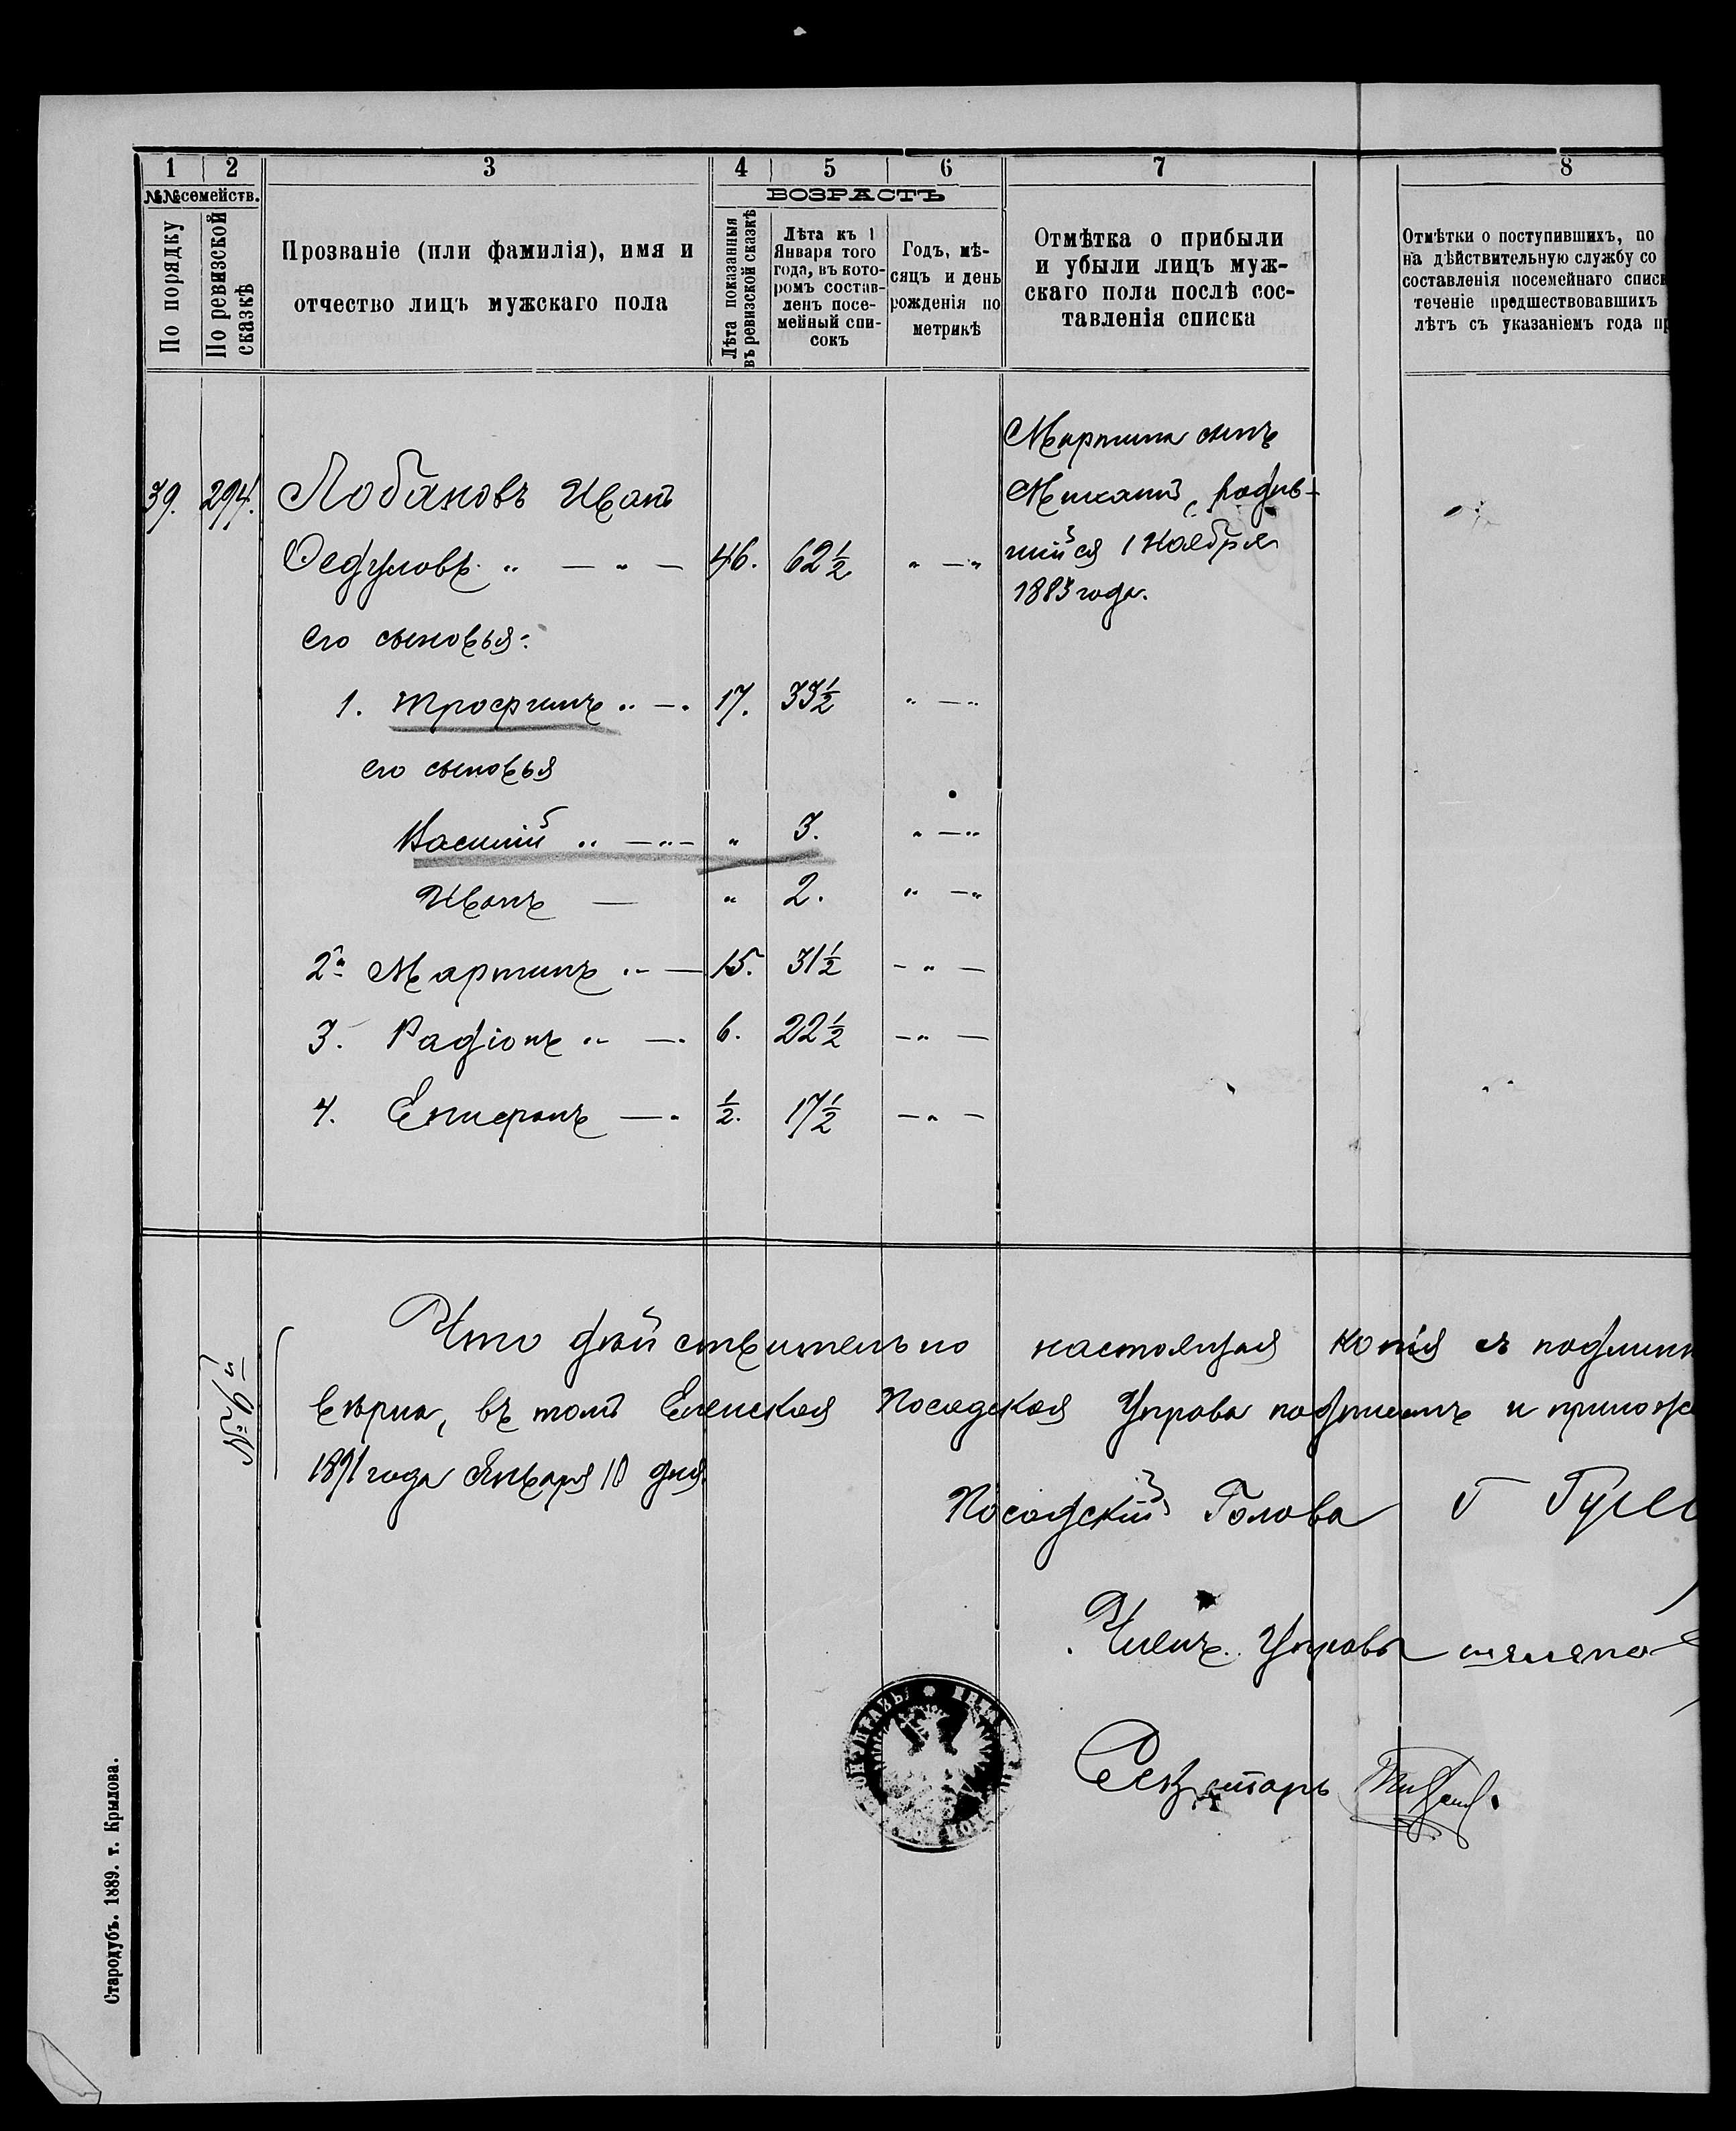 1 2 3 4 5 6 7 8
№№ семействъ.
По порядку
По ревизской сказкѣ
Прозваніе (или фамилія), имя и
отчество лицъ мужскаго пола
ВОЗРАСТЪ
Лѣта показанныя
въ ревизской сказкѣ
Лѣта къ 1
Января того
года, въ кото-
ромъ состав-
ленъ посе-
мейный спи-
сокъ
Годъ, мѣ-
сяцъ и день
рожденія по
метрикѣ
Отмѣтка о прибыли
и убыли лицъ муж-
скаго пола послѣ сос-
тавленія списка
Отмѣтки о поступившихъ, по
на дѣйствительную службу со
составленія посемейнаго списк
теченіе предшествовавшихъ
лѣтъ съ указаніемъ года пр
39. 294. Лобановъ Иванъ
Федуловъ 46. 62½
его сыновья:
1. Трофимъ 17. 33½
его сыновья
Василій 3.
Иванъ 2.
2й Мартинъ 15. 31½
3. Радіонъ 6. 22½
4. Епифанъ ½. 17½
Мартина сынъ
родив-
шійся 1 Ноября
1883 года.
Что дѣйствительно настоящая копія съ подлинн
вѣрна, въ томъ Еленская Посадская Управа подписомъ и прилож
1891 года Января 10 дня.
Посадскій Голова Г
Членъ Управы
Секретарь
Стародубъ. 1889. т. Крылова.